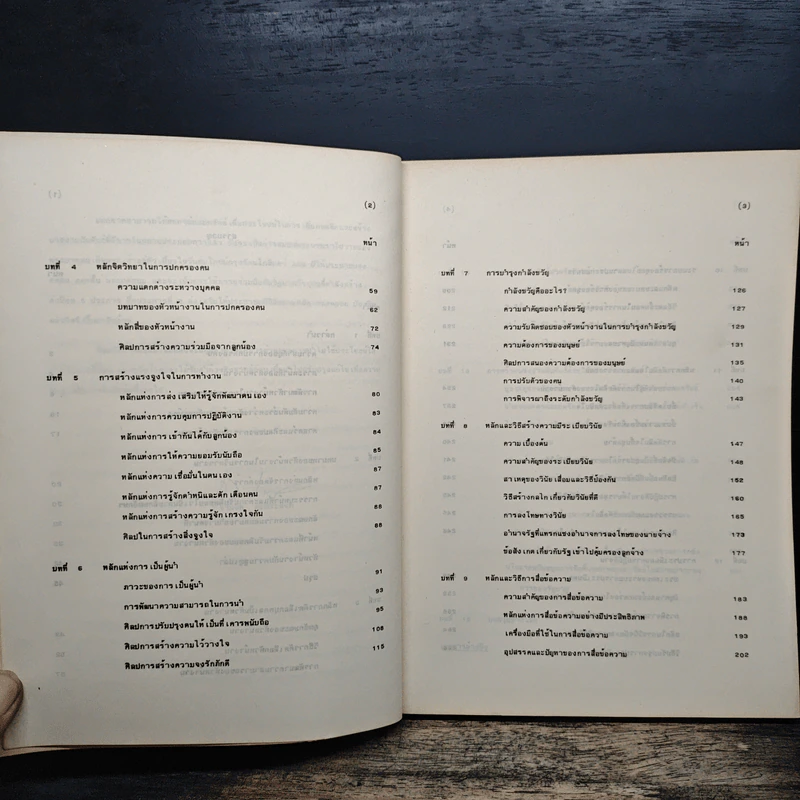 (2)
หน้า
บทที่ 4 หลักจิตวิทยาในการปกครองคน
ความแตกต่างระหว่างบุคคล 59
บทบาทของหัวหน้างานในการปกครองคน 62
หลักสี่ของหัวหน้างาน 72
ศิลปการสร้างความร่วมมือจากลูกน้อง 74
บทที่ 5 การสร้างแรงจูงใจในการทำงาน
หลักแห่งการส่งเสริมให้รู้จักพัฒนาตนเอง 80
หลักแห่งการควบคุมการปฏิบัติงาน 83
หลักแห่งการเข้ากันได้กับลูกน้อง 84
หลักแห่งการให้ความยอมรับนับถือ 85
หลักแห่งความเชื่อมั่นในตนเอง 87
หลักแห่งการรู้จักตำหนิและตักเตือนคน 87
หลักแห่งการสร้างความรู้จักเกรงใจกัน 88
ศิลปในการสร้างสิ่งจูงใจ 88
บทที่ 6 หลักแห่งการเป็นผู้นำ 91
ภาวะของการเป็นผู้นำ 93
การพัฒนาความสามารถในการนำ 95
ศิลปการปรับปรุงตนให้เป็นที่เคารพนับถือ 108
ศิลปการสร้างความไว้วางใจ 115
ศิลปการสร้างความจงรักภักดี
(3)
หน้า
บทที่ 7 การบำรุงกำลังขวัญ
กำลังขวัญคืออะไร? 126
ความสำคัญของกำลังขวัญ 127
ความรับผิดชอบของหัวหน้างานในการบำรุงกำลังขวัญ 129
ความต้องการของมนุษย์ 131
ศิลปการสนองความต้องการของมนุษย์ 135
การปรับตัวของคน 140
การพิจารณาถึงระดับกำลังขวัญ 143
บทที่ 8 หลักและวิธีสร้างความมีระเบียบวินัย
ความเบื้องต้น 147
ความสำคัญของระเบียบวินัย 148
สาเหตุของวินัยเสื่อมและวิธีป้องกัน 152
วิธีสร้างกลไกเกี่ยวกับวินัยที่ดี 160
การลงโทษทางวินัย 165
อำนาจรัฐที่แทรกแซงอำนาจการลงโทษของนายจ้าง 173
ข้อสังเกตเกี่ยวกับรัฐเข้าไปคุ้มครองลูกจ้าง 177
บทที่ 9 หลักและวิธีการสื่อข้อความ
ความสำคัญของการสื่อข้อความ 183
หลักแห่งการสื่อข้อความอย่างมีประสิทธิภาพ 188
เครื่องมือที่ใช้ในการสื่อข้อความ 193
อุปสรรคและปัญหาของการสื่อข้อความ 202